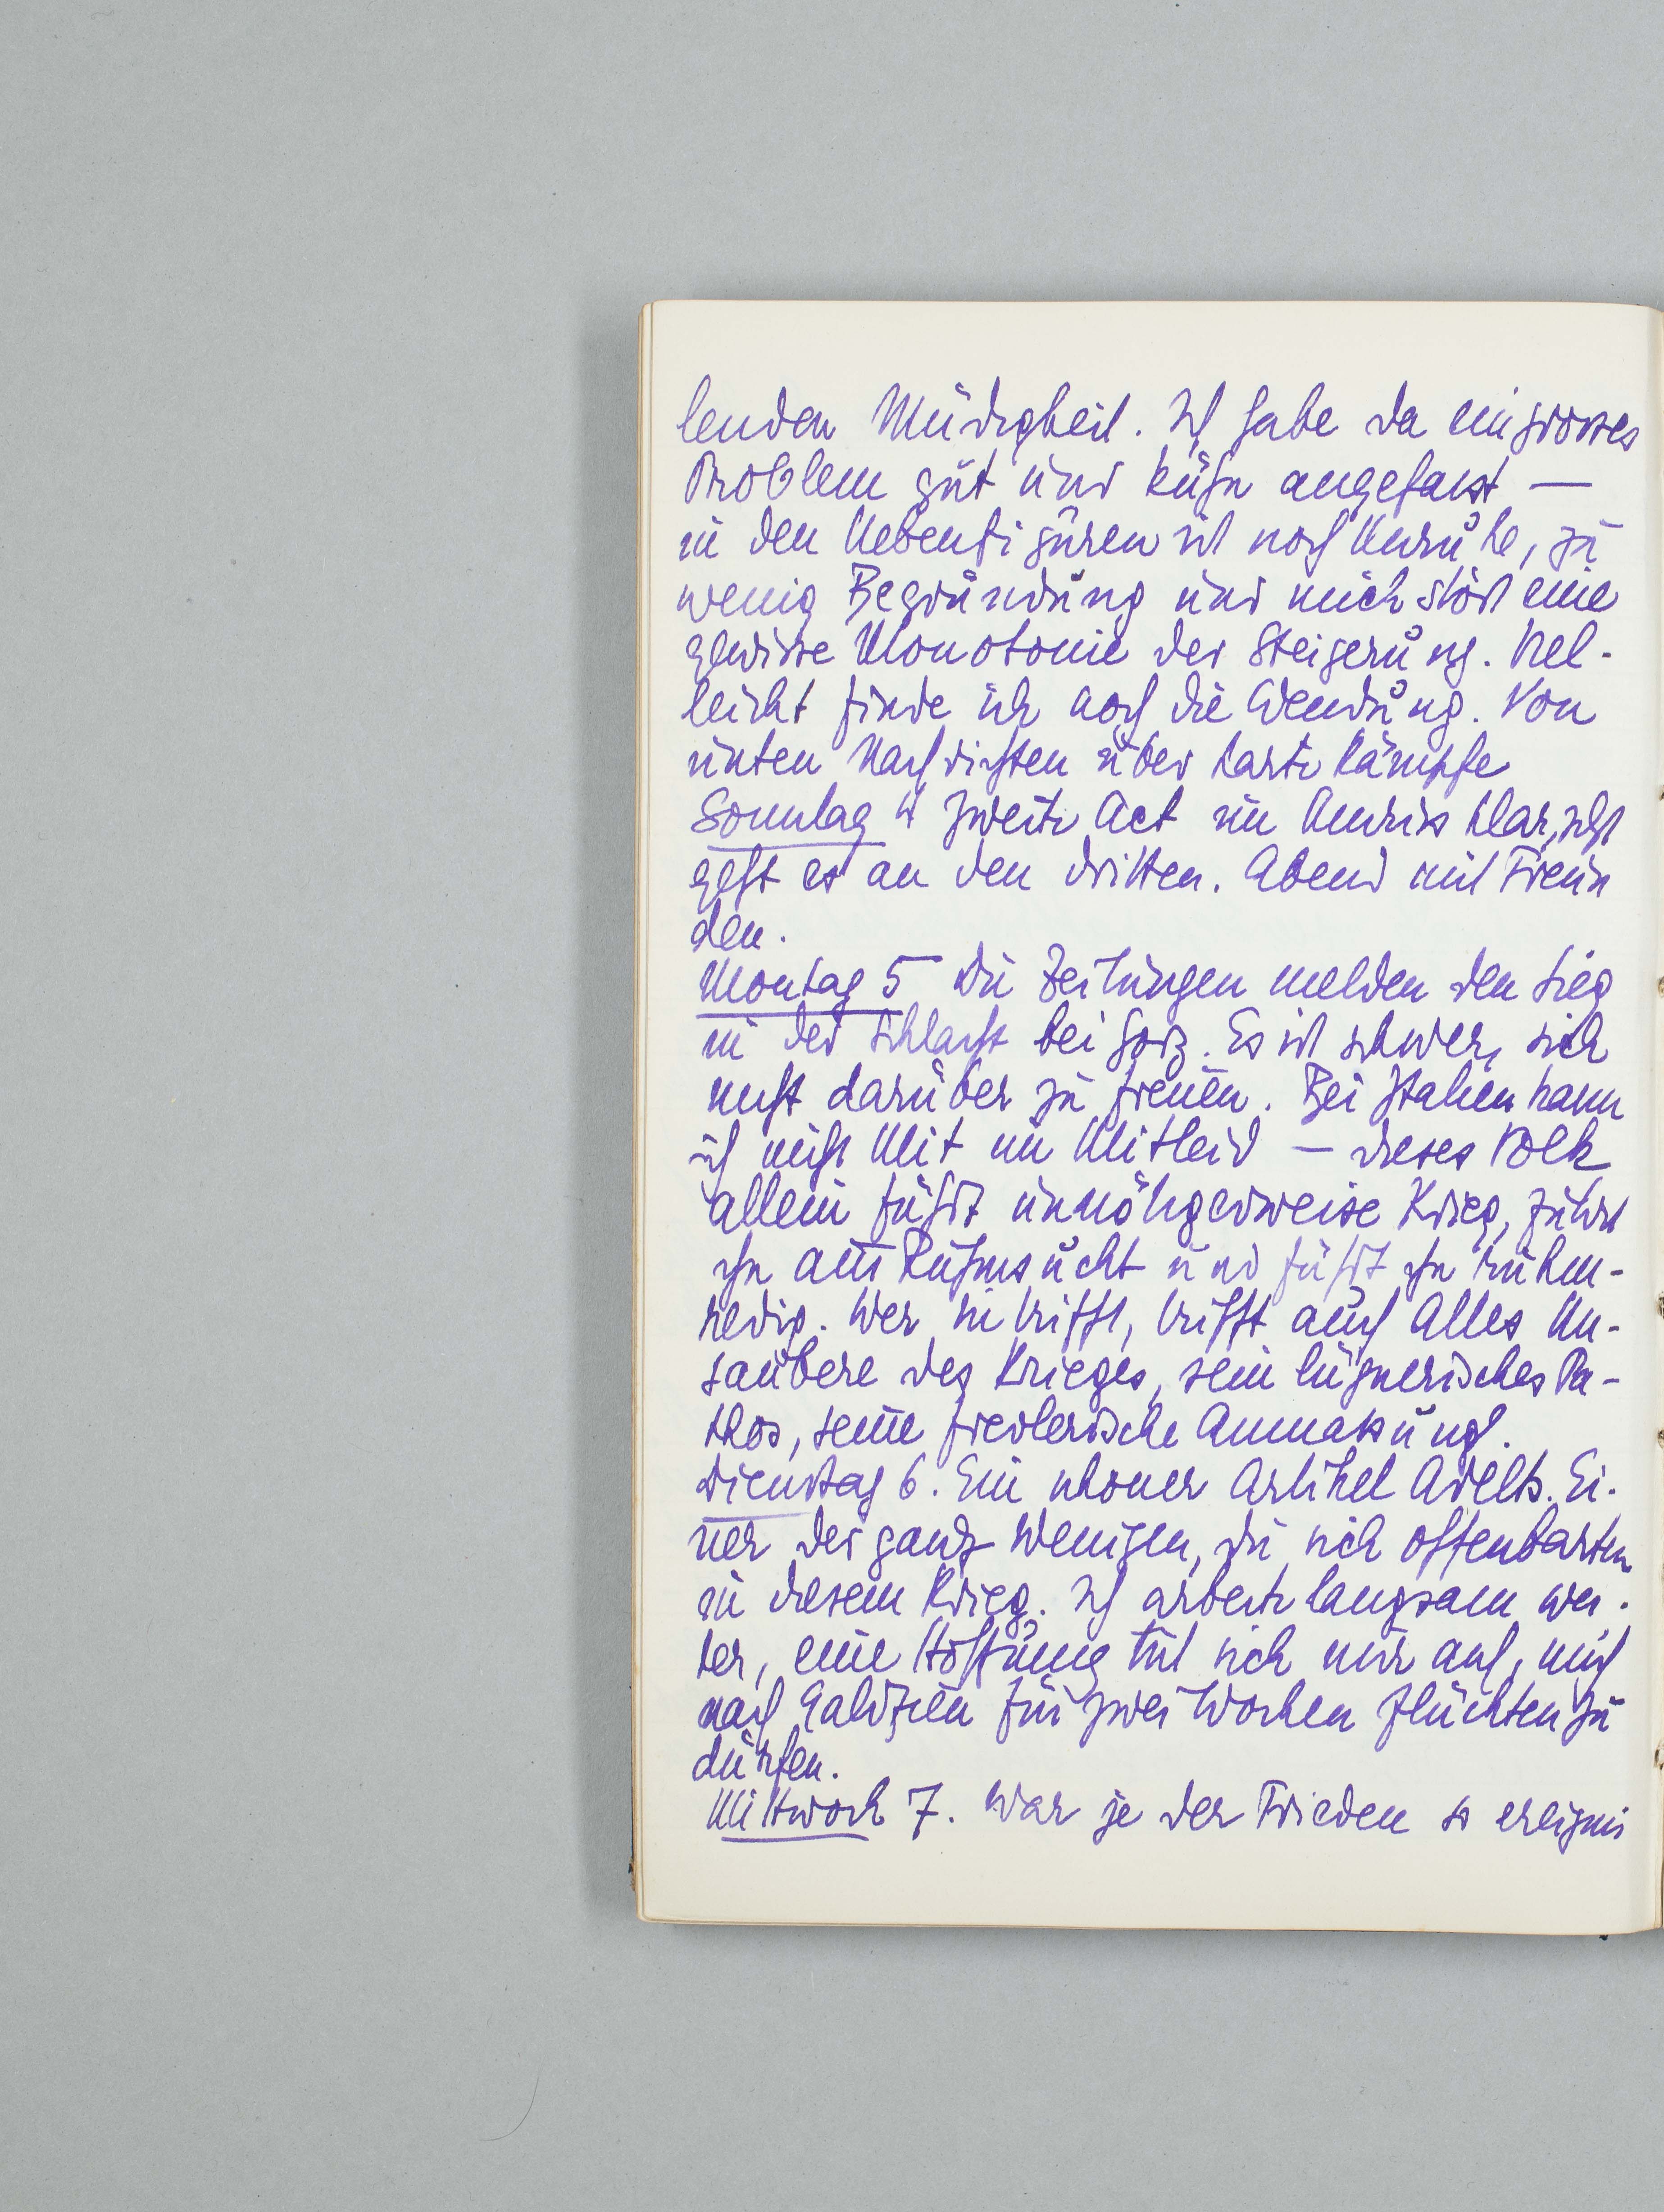 lenden Müdigkeit. Ich habe da ein grosses
Problem gut und kühn angefasst —
in den Nebenfiguren ist noch Unruhe, zu
wenig Begründung und mich stört eine
gewisse Monotonie der Steigerung. Viel-
leicht finde ich noch die Wendung. Von
unten Nachrichten über harte Kämpfe
Sonntag 4 Zweite Act im Umriss klar, jetzt
geht es an den dritten. Abend mit Freun
den.
Montag 5 Die Zeitungen melden den Sieg
in der Schlacht bei Görz. Es ist schwer, sich
nicht darüber zu freuen. Bei Italien kann
ich nicht Mit im Mitleid — dieses Volk
allein führt unnötigerweise Krieg, führt
ihn aus Ruhmsucht und führt ihn ruhm-
redig. Wer sie trifft, trifft auch Alles Un-
saubere des Krieges, sein lügnerisches Pa-
thos, seine frevlerische Anmassung.
Dienstag 6. Ein schöner Artikel Adelts. Ei-
ner der ganz Wenigen, die sich offenbarten
in diesem Krieg. Ich arbeite langsam wei-
ter, eine Hoffnung tut sich mir auf, mich
nach Galizien für zwei Wochen flüchten zu
dürfen.
Mittwoch 7. War je der Frieden so ereignis